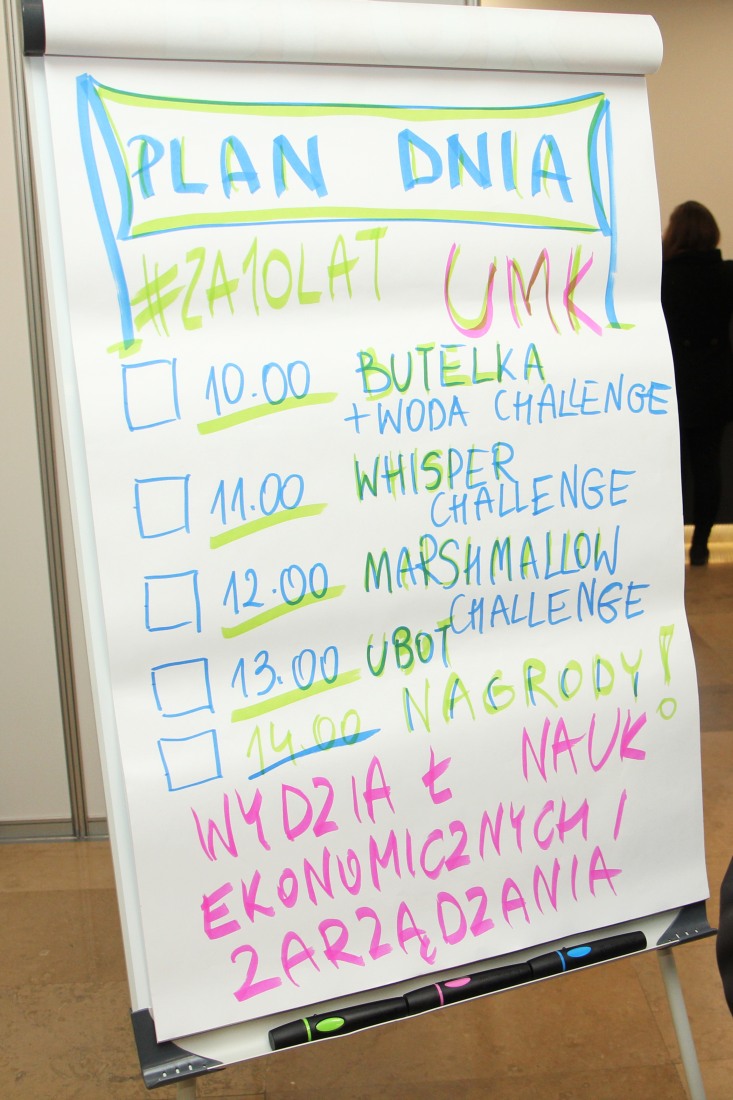 PLAN DNIA
#ZA10LAT UMK
10.00 BUTELKA
+WODA CHALLENGE
11.00 WHISPER
CHALLENGE
12.00 MARSHMALLOW
CHALLENGE
13.00 UBOT
14.00 NAGRODY!
WYDZIAŁ NAUK
EKONOMICZNYCH I
ZARZĄDZANIA